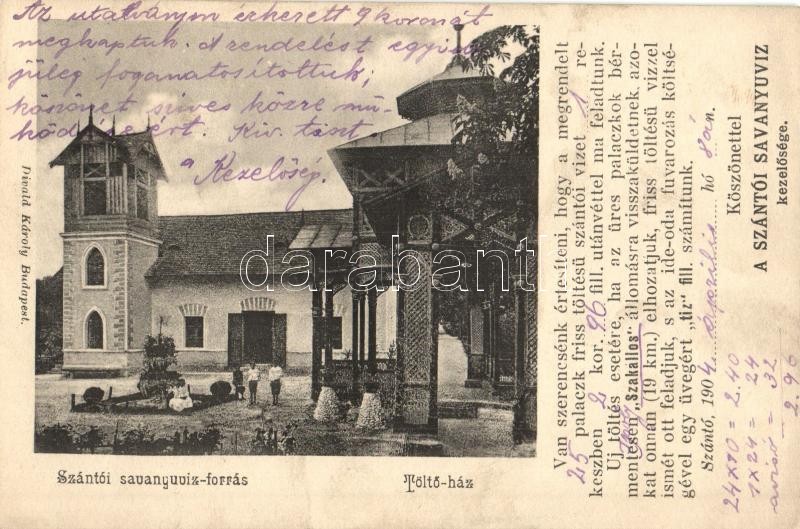 Az utalványm érkezett 9 koronát
megkaptuk. A rendelést egyide-
jüleg foganatosítottuk;
köszönet szives közre mü-
ködéseért. Kiv. tiszt
a Kezelőség.
Divald Károly Budapest.
Szántói savanyuviz-forrás
Töltő-ház
Van szerencsénk értesíteni, hogy a megrendelt
25 palaczk friss töltésü szántói vizet 1 re-
keszben 2 kor. 96 fill. utánvéttel ma feladtunk.
Uj töltés esetére, ha az üres palaczkok bér-
mentesen „Szakallos" állomásra visszaküldetnek, azo-
kat onnan (19 km.) elhozatjuk, friss töltésü vizzel
ismét ott feladjuk, s az ide-oda fuvarozás költsé-
gével egy üvegért „tiz" fill. számitunk.
Szántó, 1904 április hó 8án.
Köszönettel
A SZÁNTÓI SAVANYUVIZ
kezelősége.
24x10 = 2.40
1x24 = 24
aviso = 32
2.96
darabanth